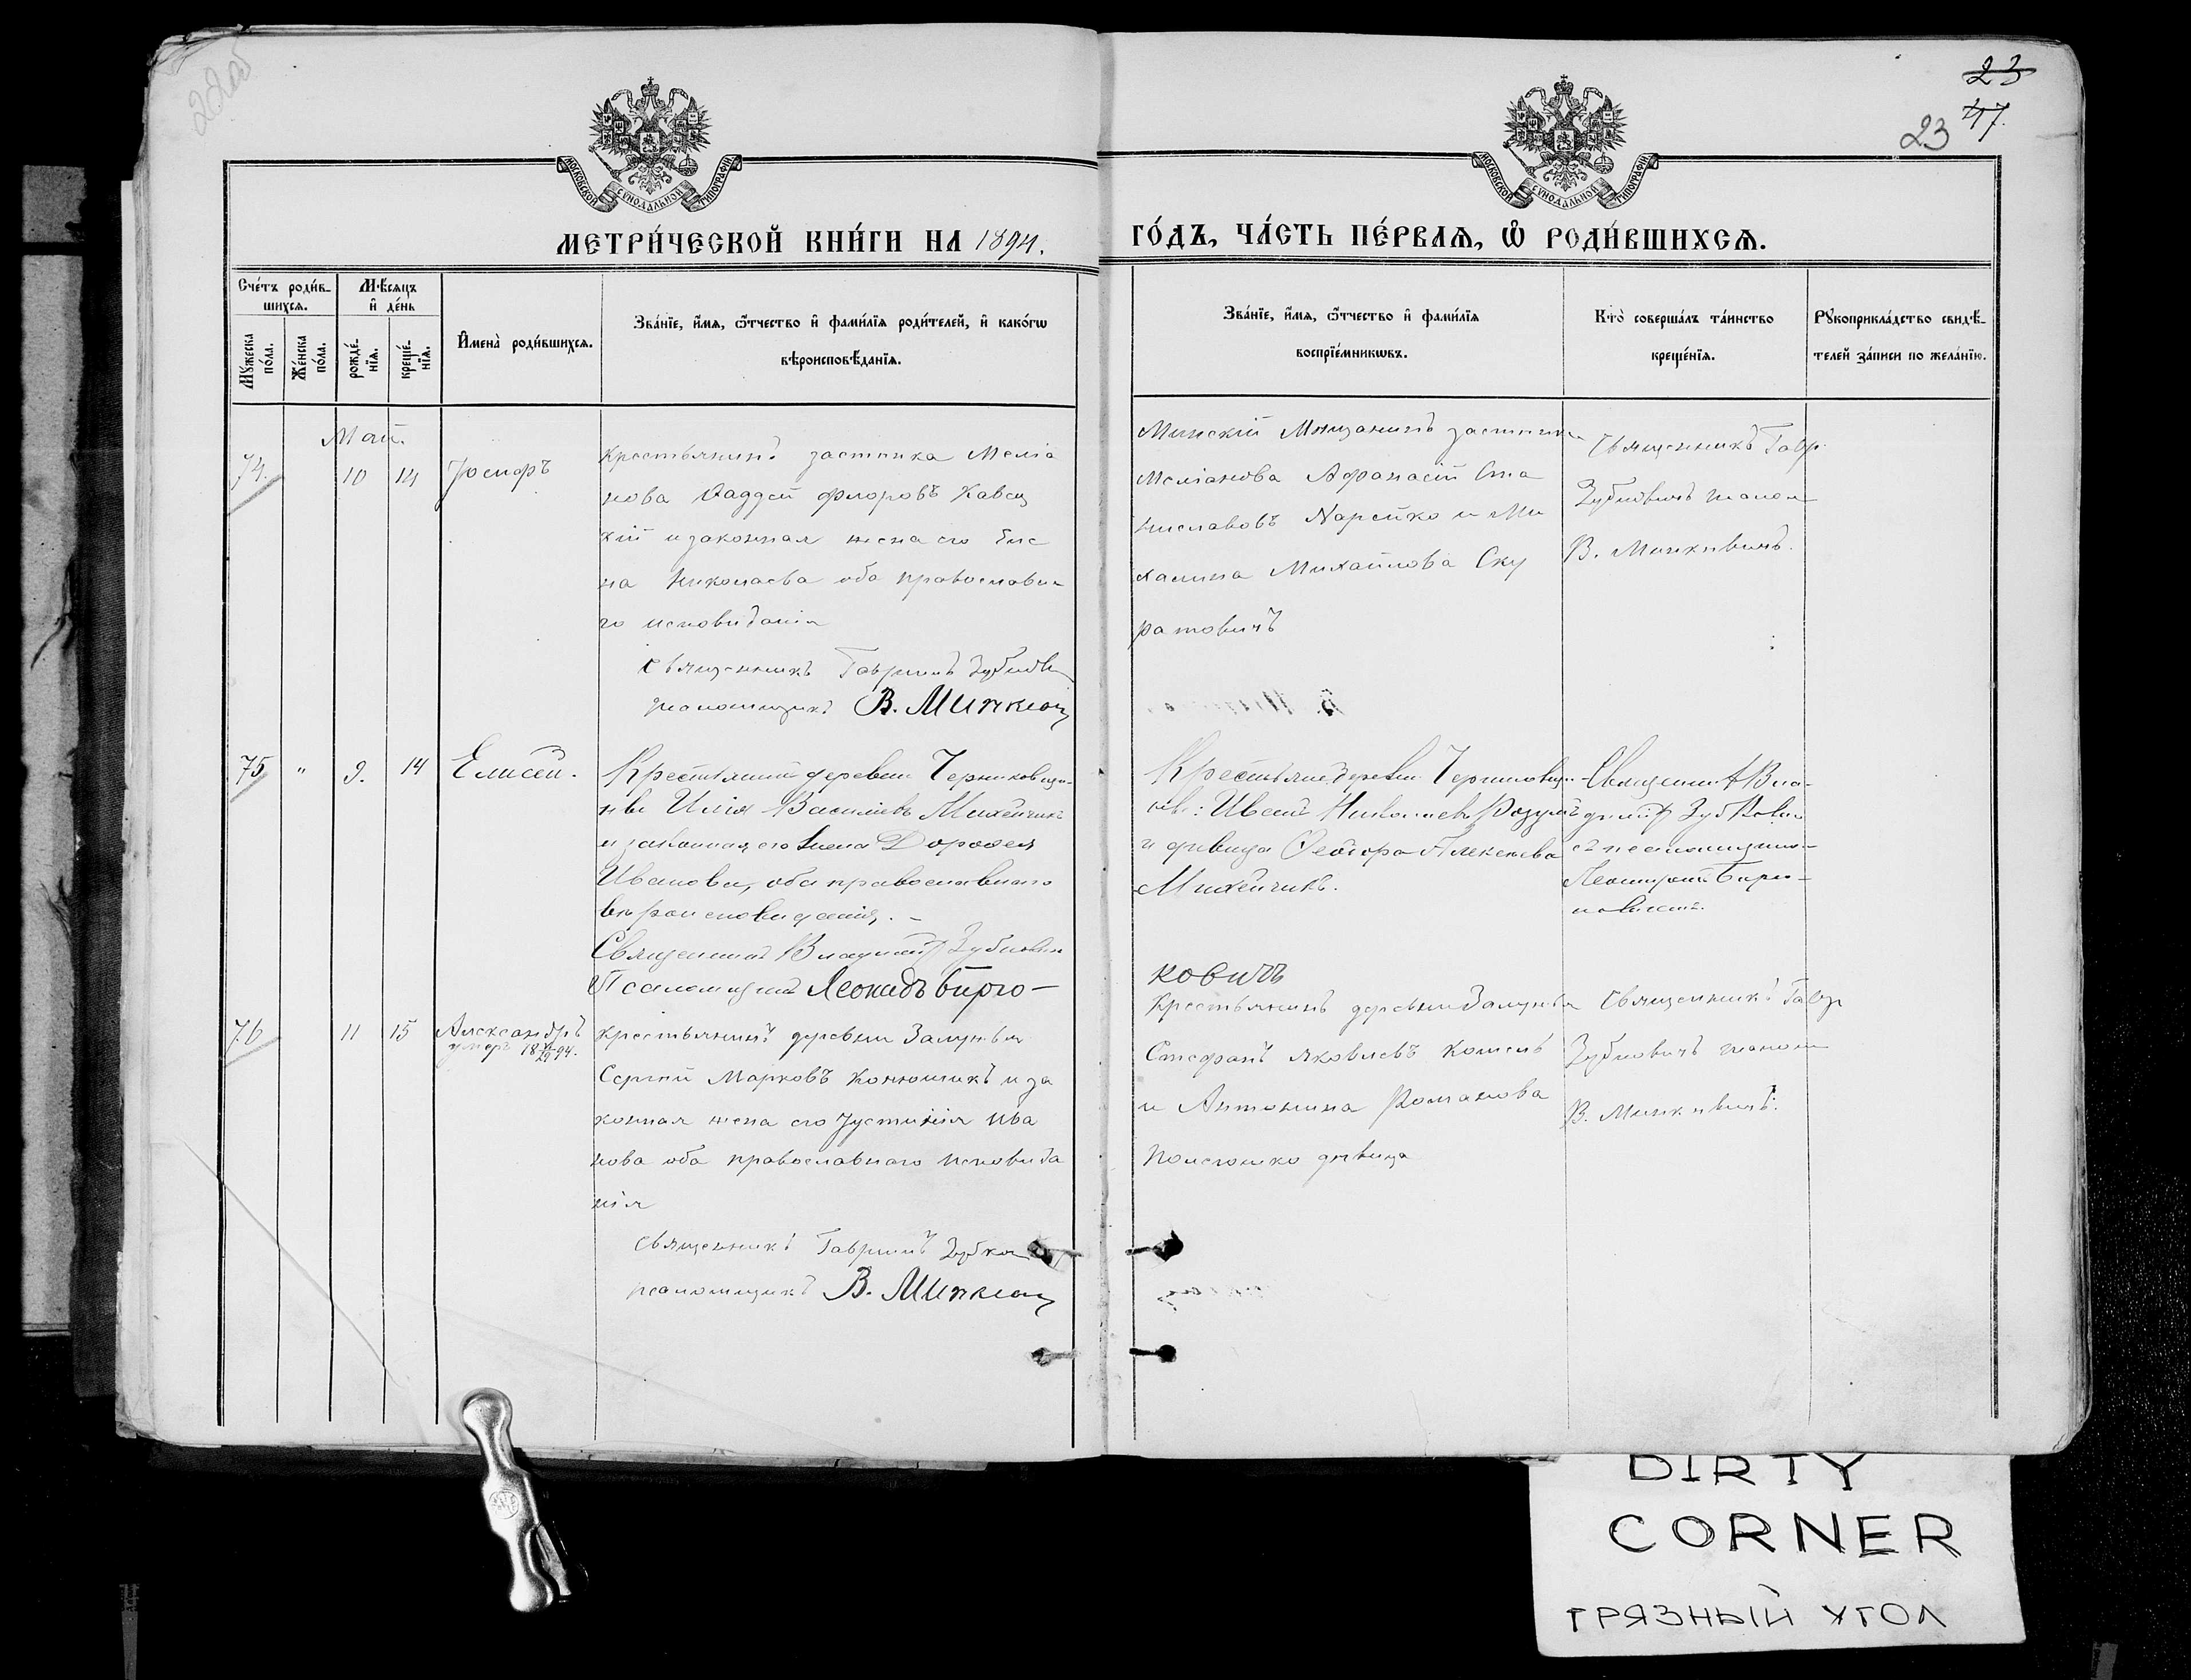 23
47.
23
МОСКОВСКОЙ СУНОДАЛЬНОЙ ТИПОГРАФІИ
МОСКОВСКОЙ СУНОДАЛЬНОЙ ТИПОГРАФІИ
МЕТРИ́ЧЕСКОЙ КНИ́ГИ НА 1894.
ГО́ДЪ, ЧА́СТЬ ПЕ́РВАЯ, Ѡ҆ РОДИ́ВШИХСЯ.
Сче́тъ роди́в-
шихся.
Мꙋ́жеска по́ла.
Же́нска по́ла.
Мѣ́сяцъ
и҆ де́нь
рожде́-нїя.
креще́-нїя.
И҆мена̀ роди́вшихся.
Зва́нїе, и҆́мя, ѻ҆́тчество и҆ фами́лїя роди́телей, и҆ како́гѡ
вѣроисповѣ́данїя.
Зва́нїе, и҆́мя, ѻ҆́тчество и҆ фами́лїя
воспрїе́мникѡвъ.
Кто̀ соверша́лъ та́инство
креще́нїя.
Рꙋкоприкла́дство свидѣ́-
телей за́писи по жела́нїю.
Май.
74.
10
14
Іосифъ
Крестьянинъ застѣнка Меліа
нова Ѳаддей Флоровъ Кавец
кій и законная жена его Еле
на Николаева оба православна
го исповѣданія
Священникъ Гавріилъ Зубкови
псаломщикъ В. Минкеви
Минскій Мѣщанинъ застѣнка
Меліанова Афанасій Ста
ниславовъ Нарейко и Ми
халина Михайлова Ску
ратовичъ
Священникъ Гавр.
Зубковичъ псалом
В. Минкевичъ.
75
"
9.
14
Елисей.
Крестьянинъ деревни Черниковщи-
ны Илія Василіевъ Михейчикъ
и законная его жена Дороѳея
Иванова, оба православнаго
вѣроисповѣданія. –
Священникъ Владиміръ Зубковичъ
Псаломщикъ Леонидъ Бирю-
ковичъ
Крестьяне деревни Черниковщи-
ны: Иванъ Николаевъ Розумъ
и дѣвица Ѳеодора Алексѣева
Михейчикъ.
Священникъ Вла-
диміръ Зубкович
съ псаломщико-
76
11
15
Александръ
умеръ 18 94.
Крестьянинъ деревни Залужья
Сергій Марковъ Конюшикъ и за
конная жена его Іустинія Ива
нова оба православнаго исповѣда
нія
Священникъ Гавріилъ Зубков
псаломщикъ В. Минкеви
Крестьянинъ деревни Залужья
Стефанъ Яковлевъ Комель
и Антонина Романова
дѣвица
Священникъ Гавр
Зубковичъ псалом
В. Минкевичъ.
DIRTY
CORNER
ГРЯЗНЫЙ УГОЛ